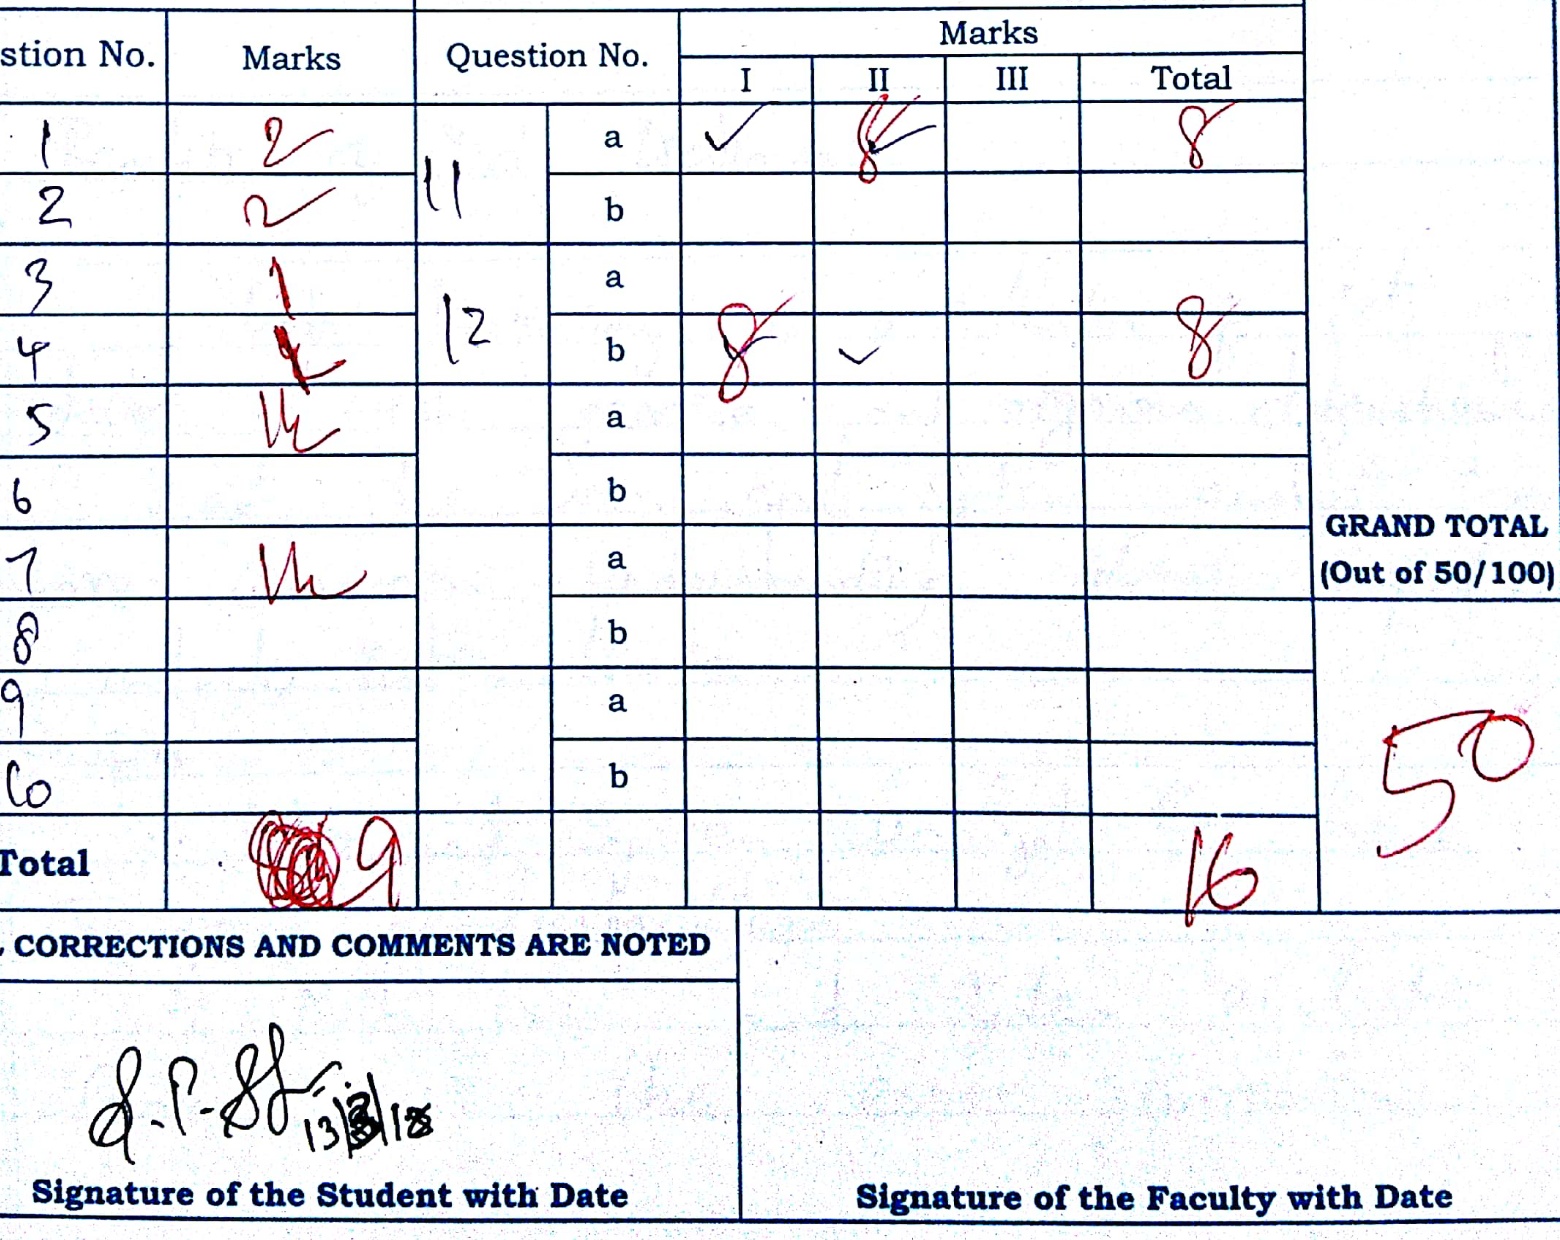 stion No. Marks Question No. Marks
I II III Total
1 2 11 a ✓ 8 ✓ 8
2 2 b
3 1 12 a
4 b 8 ✓ 8
5 1½ a
6 b
7 1½ a
8 b
9 a
10 b
GRAND TOTAL
(Out of 50/100)
50
Total 9 16
CORRECTIONS AND COMMENTS ARE NOTED
13/ /18
Signature of the Student with Date Signature of the Faculty with Date